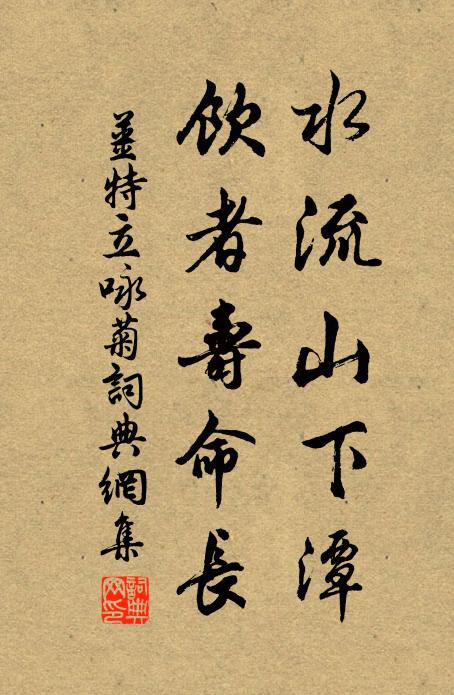 水流山下潭
飲者壽命長
姜特立咏菊詞典網集
詞典
网印